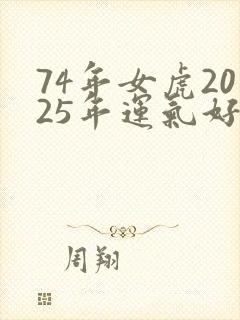 74年女虎20
25年運氣好
周翔